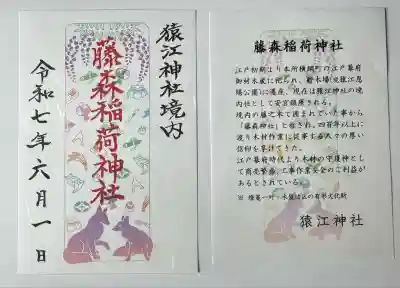 猿江神社境内
藤森稲荷神社
令和七年六月一日
藤森稲荷神社
江戸初期より本所横綱町の江戸幕府
御材木蔵に祀られ、
に遷座、現在は猿江神社の境
内社として安宮鎮座される。
境内の藤之木で囲まれていた事から
「藤森神社」と称され、四百年以上に
渡り木材作業に従事する人々の厚い
信仰を享けてきた。
江戸幕府時代より木材の守護神とし
て商売繁盛、工事作業安全のご利益が
あるとされている。
猿江神社